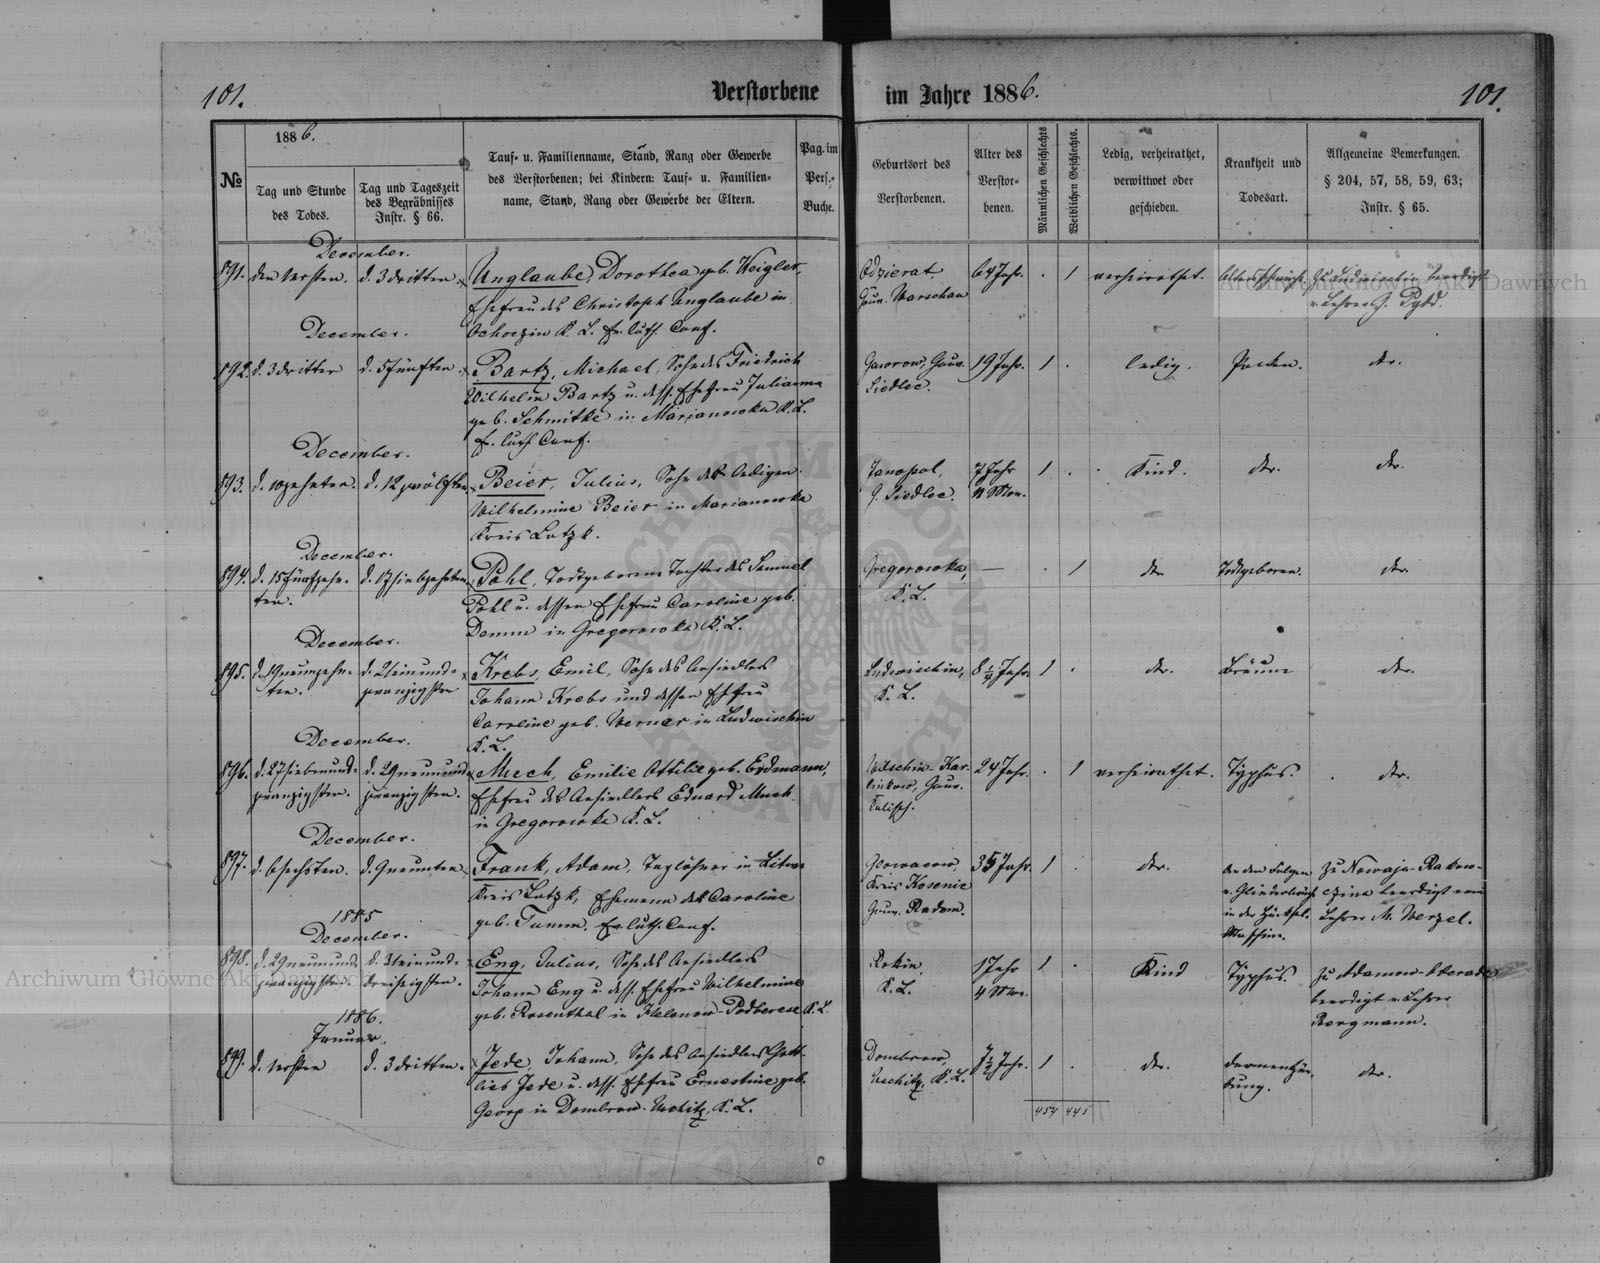 101.
Verstorbene
im Jahre 1886.
101.
№
1886.
Tag und Stunde
des Todes.
Tag und Tageszeit
des Begräbnisses
Instr. § 66.
Tauf- u. Familienname, Stand, Rang oder Gewerbe
des Verstorbenen; bei Kindern: Tauf- u. Familien-
name, Stand, Rang oder Gewerbe der Eltern.
Pag. im
Pers.-
Buche.
Geburtsort des
Verstorbenen.
Alter des
Verstor-
benen.
Männlichen Geschlechts
Weiblichen Geschlechts.
Ledig, verheirathet,
verwittwet oder
geschieden.
Krankheit und
Todesart.
Allgemeine Bemerkungen.
§ 204, 57, 58, 59, 63;
Instr. § 65.
December.
891. den ersten. d. 3 dritten. Unglaube, Dorothea geb. Weigler,
Ehefrau des Christoph Unglaube in
K. L. Ev. luth. Conf.
Gouv. Warschau
64 Jahr. 1 verheirathet.
beerdigt
v. Lehrer
December.
892. d. 3 dritten d. 5 fünften. Bartz, Michael, Sohn des Friedrich
Wilhelm Bartz u. dess. Ehefrau Julianna
geb. Schmitke in Marianowka K. L.
Ev. luth. Conf.
Gouv.
Siedlec.
19 Jahr. 1 ledig. Pocken. do.
December.
893. d. 10 zehnten. d. 12 zwölften. Beier, Julius, Sohn der ledigen
Wilhelmine Beier in Marianowka
Kreis Lutzk.
Janopol,
G. Siedlec.
7 Jahr
11 Mon.
1 Kind. do. do.
December.
894. d. 15 fünfzehn-
ten.
d. 17 siebzehnten Pohl, Todtgeborene Tochter des Samuel
Pohl u. dessen Ehefrau Caroline geb.
Demm in Gregorowka K. L.
Gregorowka,
K. L.
— 1 do. Todtgeboren. do.
December.
895. d. 19 neunzehn-
ten.
d. 21 einund-
zwanzigsten
Krebs, Emil, Sohn des Ansiedlers
Johann Krebs und dessen Ehefrau
Caroline geb. Werner in Ludwischin
K. L.
Ludwischin,
K. L.
8 1/4 Jahr. 1 do. Bräune do.
December.
896. d. 27 siebenund-
zwanzigsten.
d. 29 neunund-
zwanzigsten.
Mech, Emilie Ottilie geb. Erdmann,
Ehefrau des Ansiedlers Eduard Mech
in Gregorowka K. L.
Gouv.
Kalisch.
24 Jahr. 1 verheirathet. Typhus. do.
December.
897. d. 6 sechsten. d. 9 neunten Frank, Adam, Taglöhner in
Kreis Lutzk, Ehemann der Caroline
geb. Tumm. Ev. luth. Conf.
Kreis Kosenie
Gouv. Radom.
35 Jahr. 1 do.
An den Folgen
in der Häcksel-
Maschine.
Zu Nowaja-Rakow-
czina beerdigt vom
Lehrer M. Werzel.
1885
December.
898. d. 29 neunund-
zwanzigsten.
d. 31 einund-
dreißigsten.
Eng, Julius, Sohn des Ansiedlers
Johann Eng u. dess. Ehefrau Wilhelmine
geb. Rosenthal in Helenow-Podberese K. L.
Rokin,
K. L.
1 Jahr
4 Mon.
1 Kind Typhus.
Zu Adamow
beerdigt v. Lehrer
Bergmann.
1886.
Januar.
899. d. ersten d. 3 dritten. Jede, Johann, Sohn des Ansiedlers Gott-
lieb Jede u. dess. Ehefrau Ernestine geb.
Georg in Dombrow-Uschitz, K. L.
Dombrow
Uschitz, K. L.
7 1/2 Jahr. 1 do.
Darmentzün-
dung.
do.
454 445
Archiwum Główne Akt Dawnych
Archiwum Główne Akt Dawnych